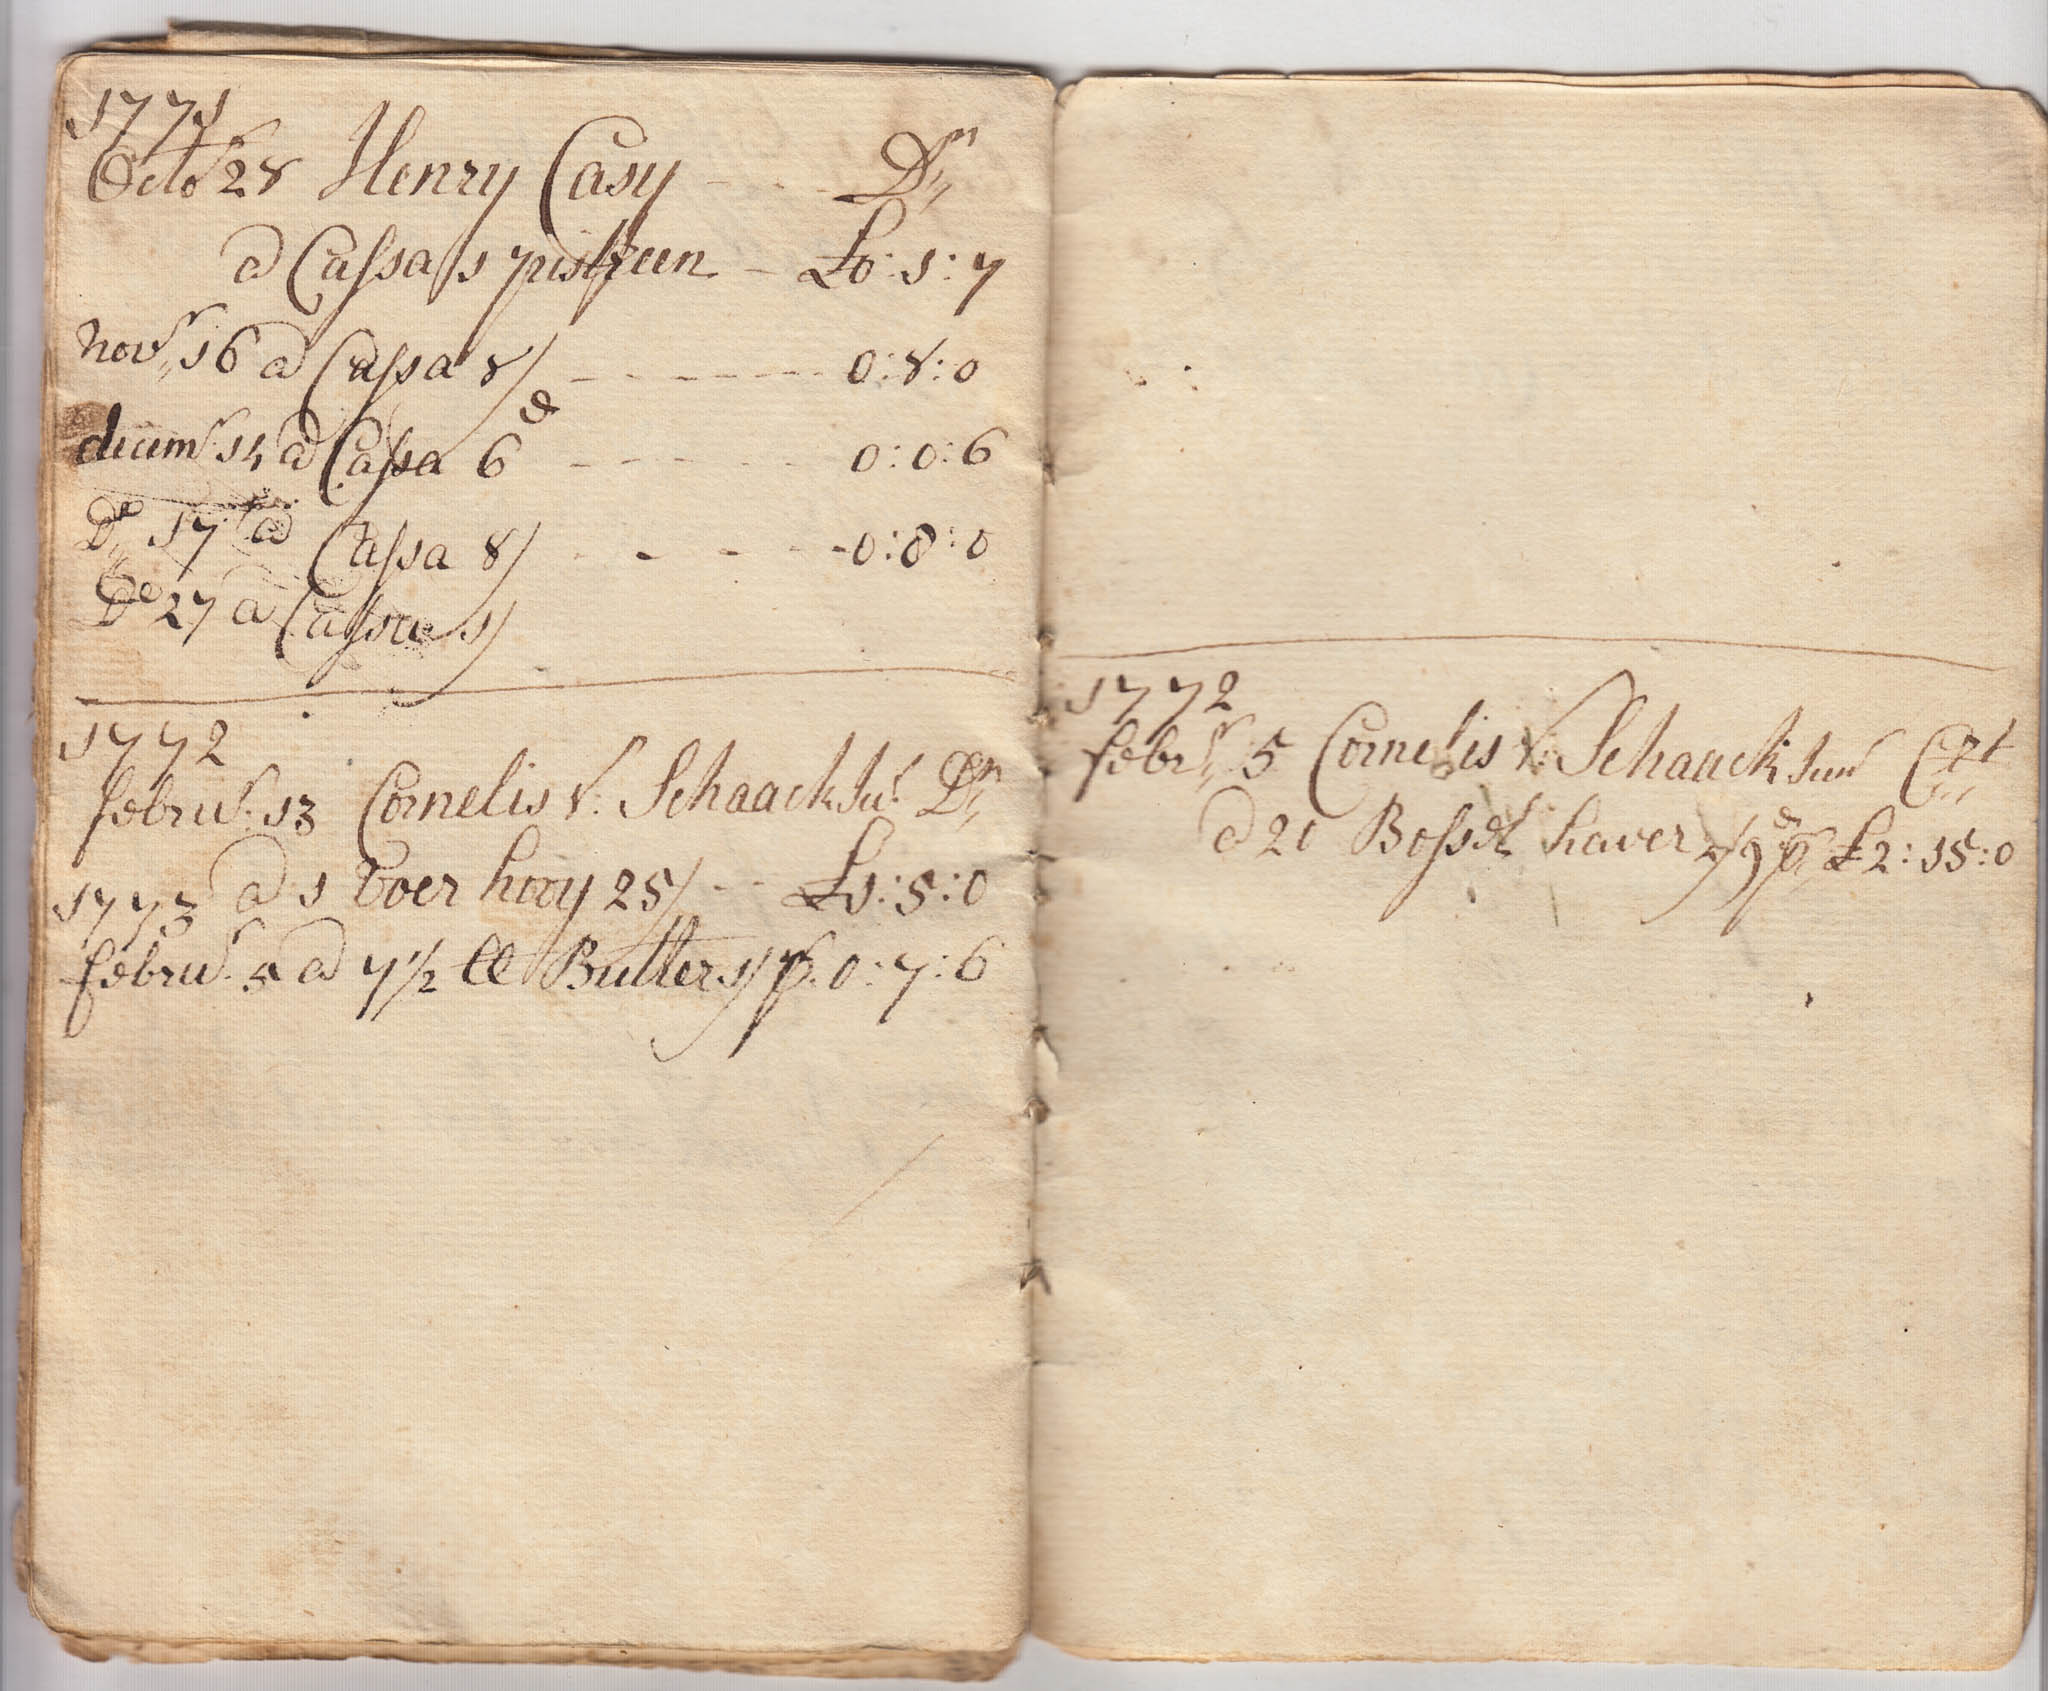 1771
Octobr 28 Henry Casy - - - Dr
a Cassa 1 pistreen - £0:1:7
novr 16 a Cassa 8/ - - - - - - 0:8:0
decemr 14 a Cassa 6d - - - - - 0:0:6
Do 17 a Cassa 8/ - - - - - 0:8:0
Do 27 a Cassa 1/
1772
februr. 13 Cornelis V. Schaack Jur. Dr
a 1 voer hooy 25/ - - £1:5:0
1773
februr. 5 a 7 1/2 lb Butter 1/ pr. 0:7:6
1772
febrr 5 Cornelis V. Schaack Junr Crt
a 20 Bossel haver 2/9d pr £2:15:0